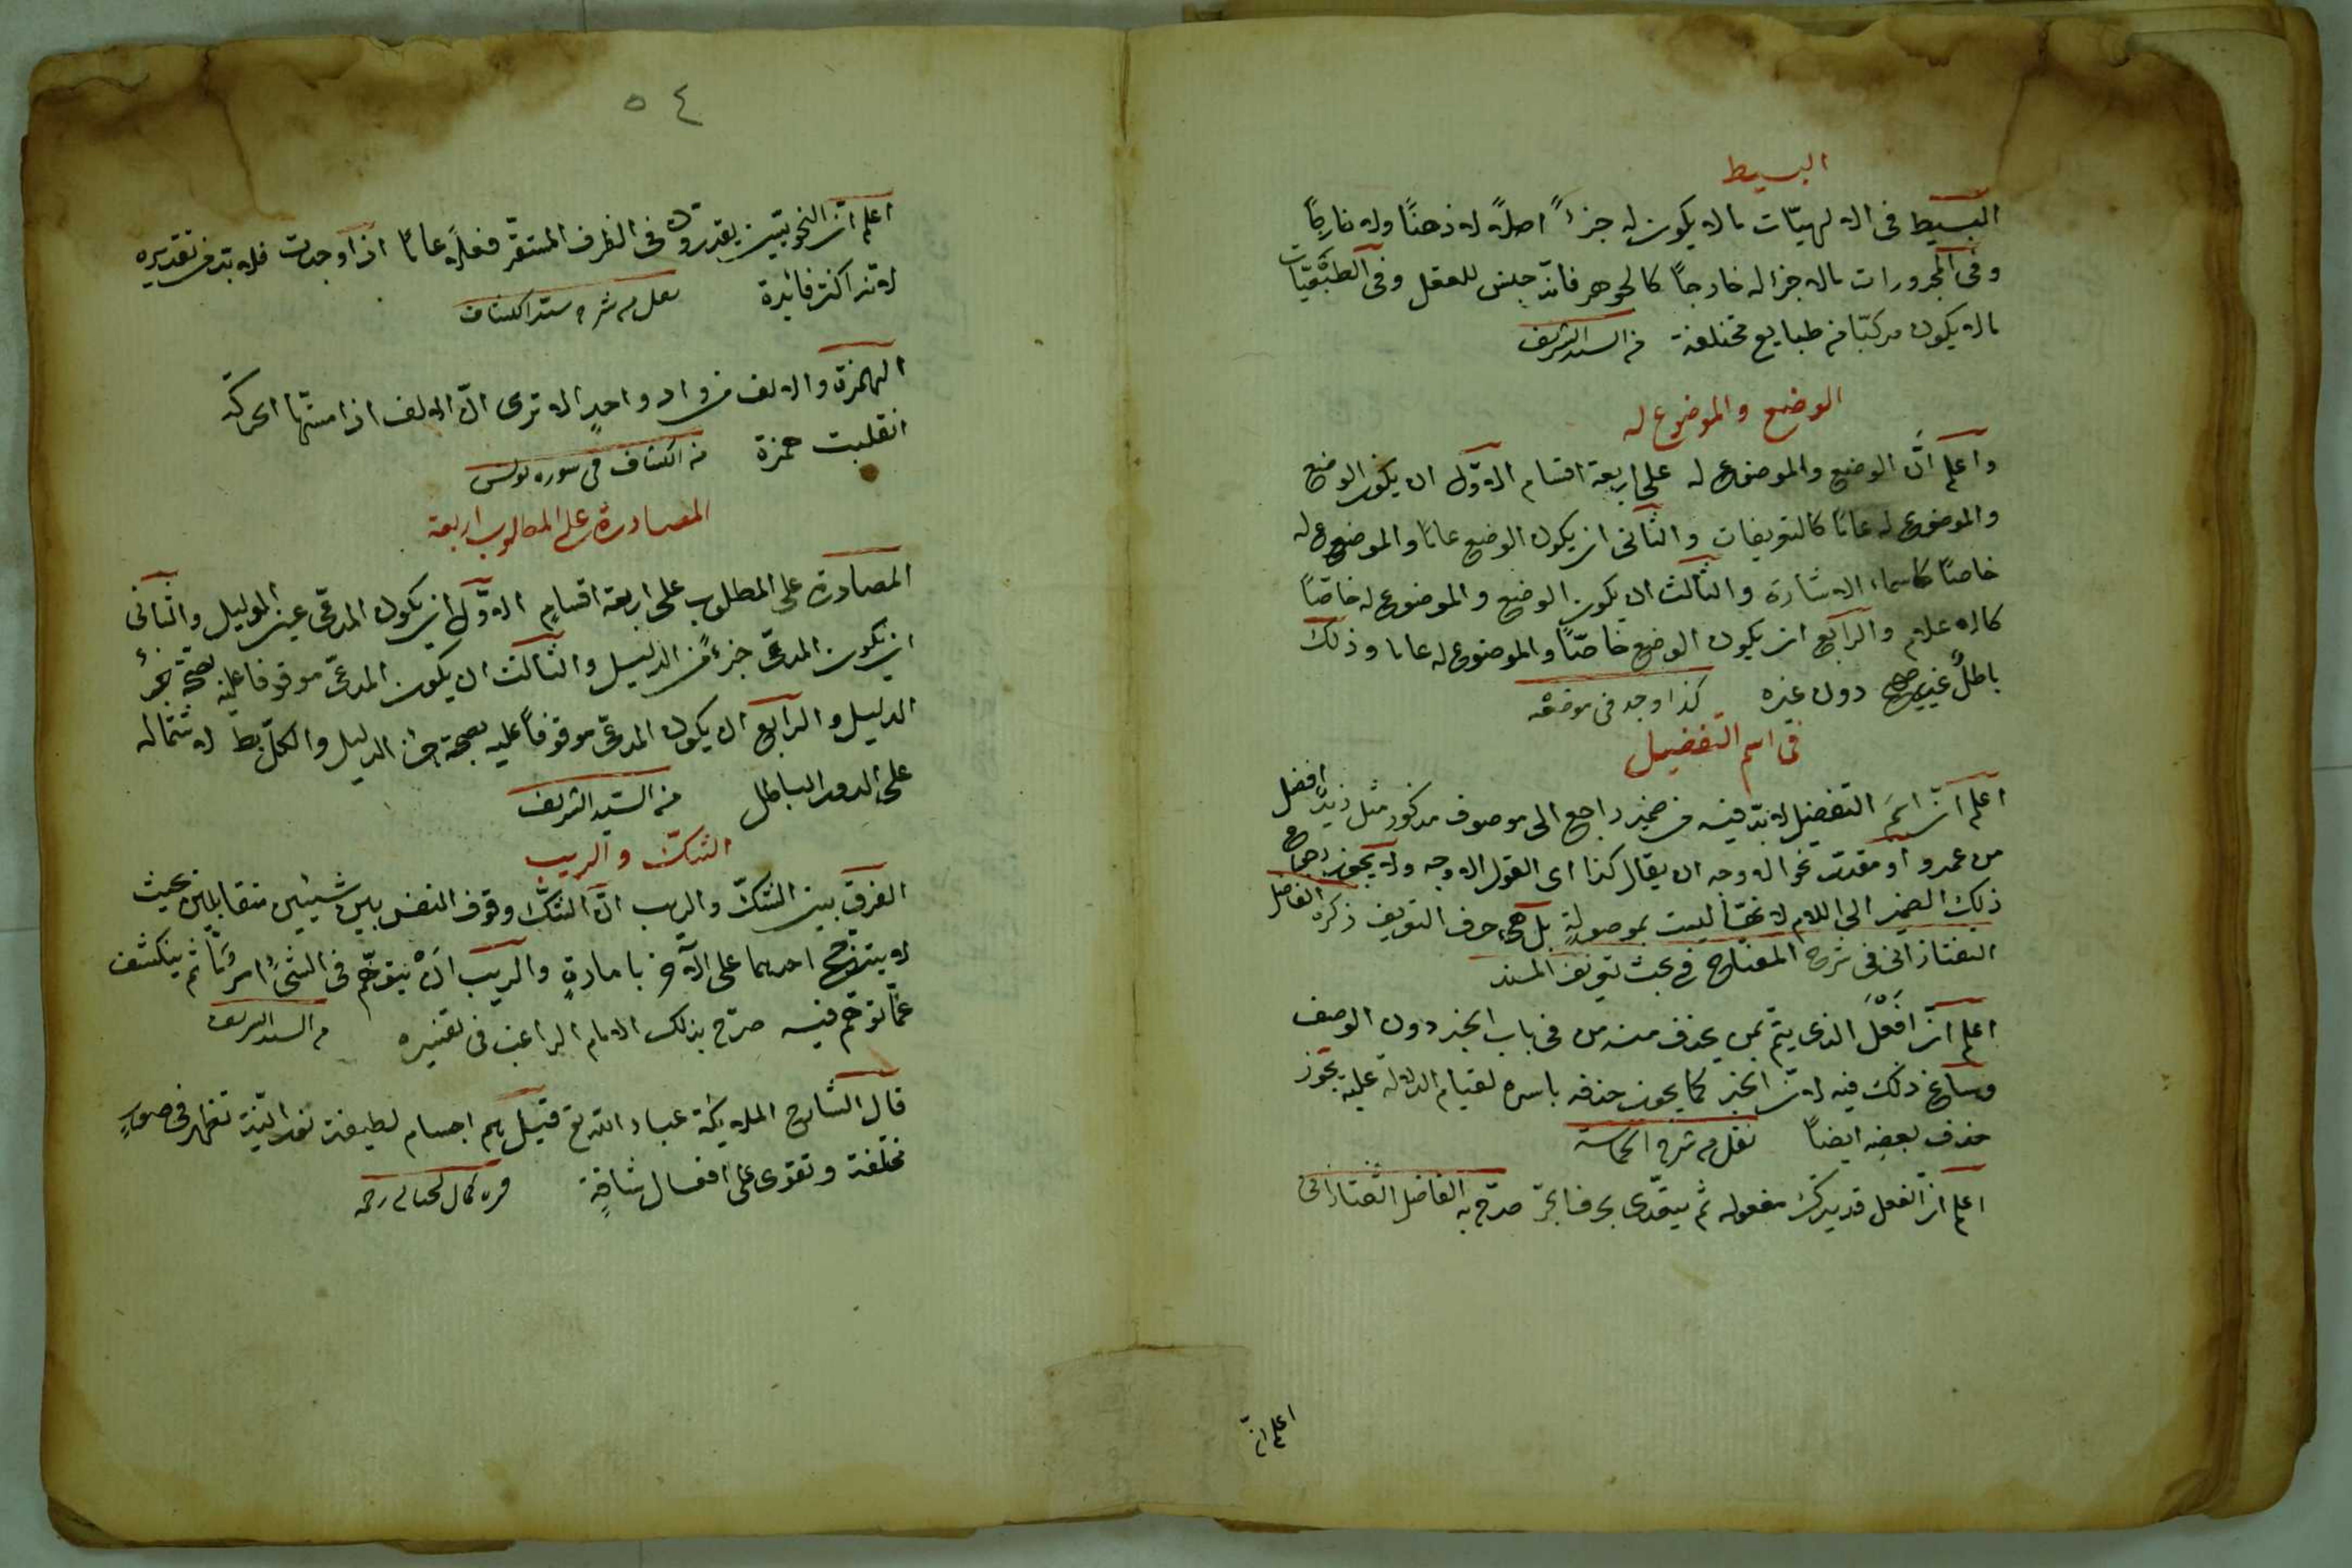 البسيط
البسيط فى الالهيّات ما لا يكون له جزءً اصلاً لا ذهنًا ولا خارجًا
وفى المجرورات ما لا جزا له خارجاً كالجوهر فانّه جنس للعقل وفى الطبيقيّات
ما لا يكون مركبّا من طبايع مختلفة من السيد الشريف
الوضع والموضوع له
واعلم انّ الوضع والموضوع له على اربعة اقسام الاوّل ان يكون الوضع
والموضوع له عامًا كالتعريفات والثانى ان يكون الوضع عامًا والموضوع له
خاصًا كاسماء الاشارة والثالث ان يكون الوضع والموضوع له خاصّاً
كالاعلام والرابع ان يكون الوضع خاصّاً والموضوع له عاما وذلك
باطلٌ غير صحيح دون غيره كذا وجد فى موضعه
فى اسم التفضيل
اعلم انّ اسمَ التفضيل لا بدّ فيه من ضمير راجع الى موصوف مذكور مثل زيدٌ افضل
من عمرو او مقدّر نحو الاوجه ان يقال كذا اى القول الاوجه ولا يجوز رجاع
ذلك الضمير الى اللام لانّها ليست بموصولةٍ بل هى حرف التعريف ذكره الفاضل
التفتازانى فى شرح المفتاح فى بحث تعريف المسند
اعلم انّ اَفْعَلَ الذى يتمّ بمن يحذف منه من فى باب الخبر دون الوصف
وساغ ذلك فيه لانّ الخبر كما يجوز حذفه باسره لقيام الدلالة عليه يجوز
حذف بعضِه ايضاً نقل من شرح الحماسة
اعلم انّ الفعل قد يترك مفعوله ثم يتعدّى بحرف الجرّ صرّح به الفاضل التفتازانى
اعلم انّ
٥٤
اعلم انّ النحويّين يقدرون فى الظرف المستقرّ فعلاً عامّا اذا وجدت فلا بدّ من تقديره
لانّه اكثر فائدة نقل من شرح سيد الكشاف
الهمزة والالف من واد واحدٍ الا ترى انّ الالف اذا مسّتها الحركة
انقلبت همزة من الكشاف فى سوره يونس
المصادرة على المطلوب اربعة
المصادرة على المطلوب على اربعة اقسامٍ الاوّل ان يكون المدعى عين الدليل والثانى
ان يكون المدعى جزءً من الدليل والثالث ان يكون المدعى موقوفا عليه لصحّة جزء
الدليل والرابع ان يكون المدعى موقوفاً عليه بصحة جزء الدليل والكلّ بط لاشتماله
على الدور الباطل من السيد الشريف
الشكّ والريب
الفرق بين الشكّ والريب انّ الشكّ وقوف النفس بين شيئين متقابلين بحيث
لا يترجّح احدهما على الآخر بامارةٍ والريب انْ يتوهّم فى الشئ امر مّا ثم ينكشف
عمّا توهّم فيه صرّح بذلك الامام الراغب فى تفسيره من السيد الشريف
قال الشارح الملايكة عباد الله تع قيل هم اجسام لطيفة نورانيّة تظهر فى صورٍ
مختلفة وتقوى على افعال شاقةٍ قره كمال لخيالى رحمه